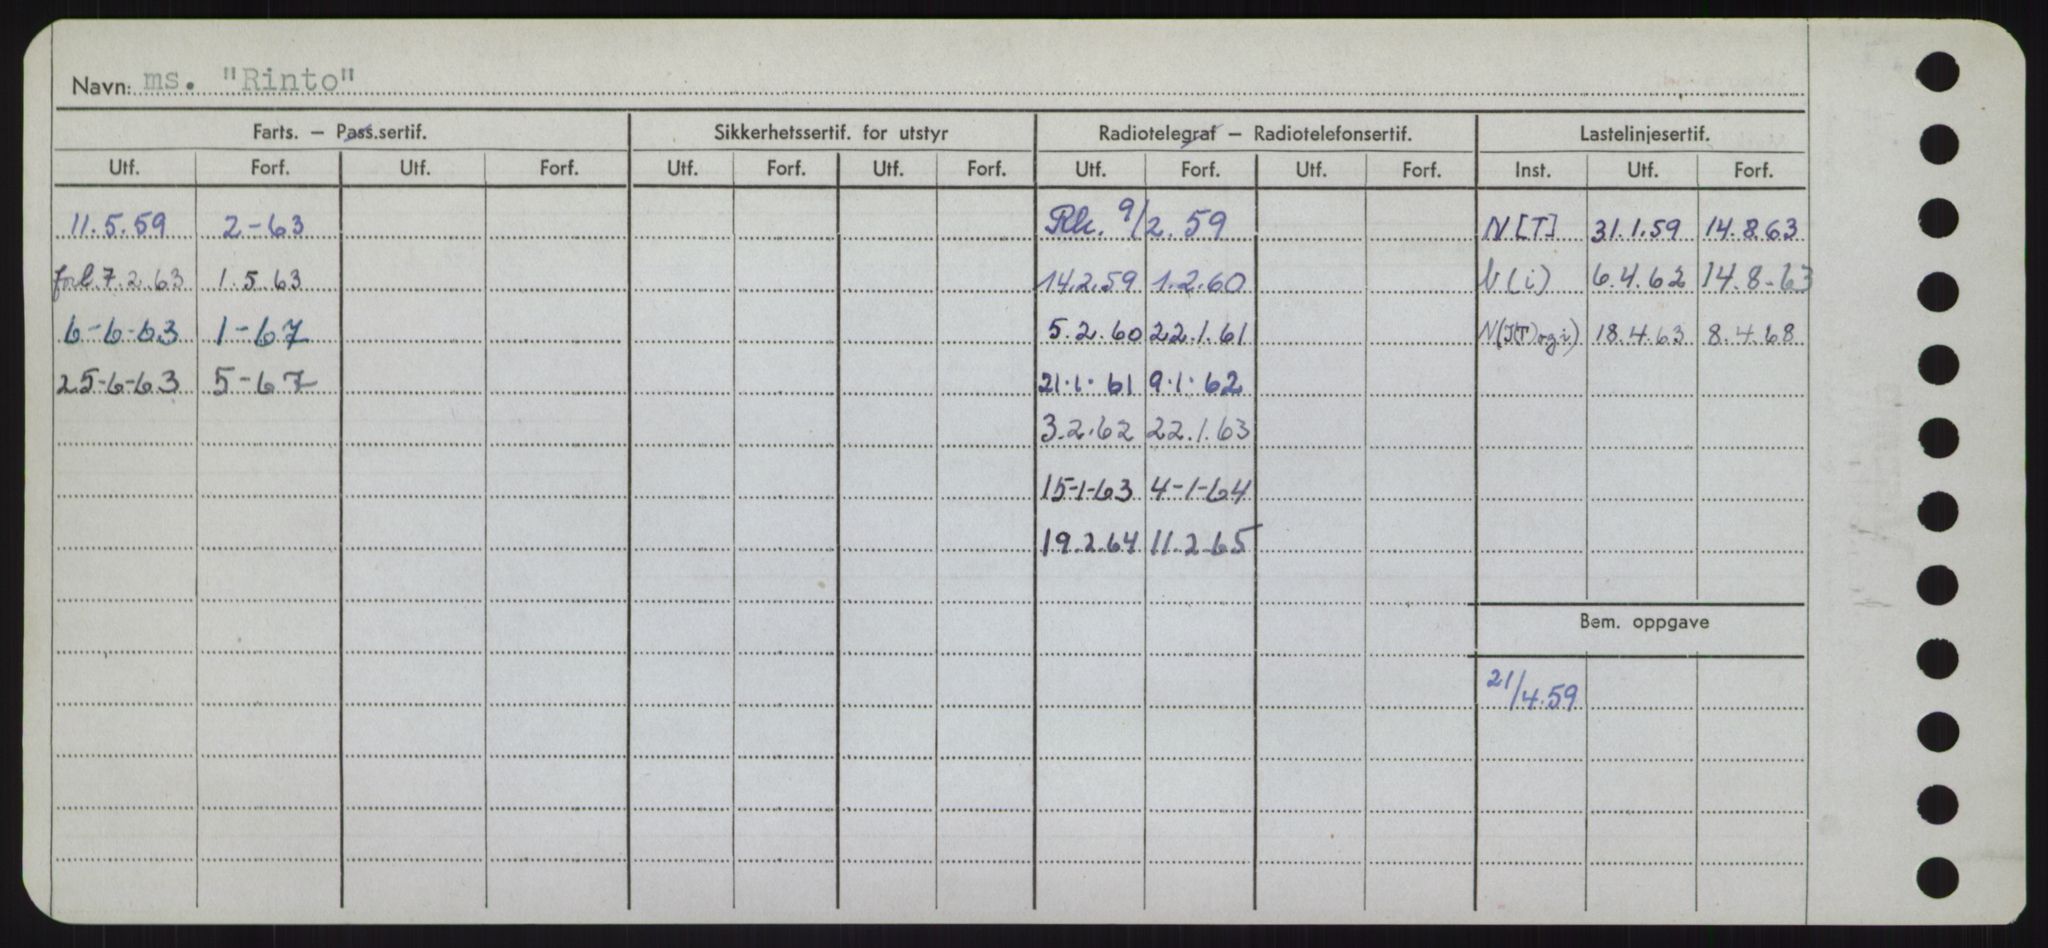 Navn: ms. "Rinto"
Farts. — Pass.sertif. Sikkerhetssertif. for utstyr Radiotelegraf — Radiotelefonsertif. Lastelinjesertif.
Utf. Forf. Utf. Forf. Utf. Forf. Utf. Forf. Utf. Forf. Utf. Forf. Inst. Utf. Forf.
11.5.59 2-63 9/2.59 N[T] 31.1.59 14.8.63
forl. 7.2.63 1.5 63 14.2.59 1.2.60 N(i) 6.4.62 14.8-63
6-6-63 1-67 5.2.60 22.1.61 N(JT) og i) 18.4.63 8.4.68
25-6-63 5-67 21.1.61 9.1.62
3.2.62 22.1.63
15-1-63 4-1-64
19.2.64 11.2.65
Bem. oppgave
21/4.59